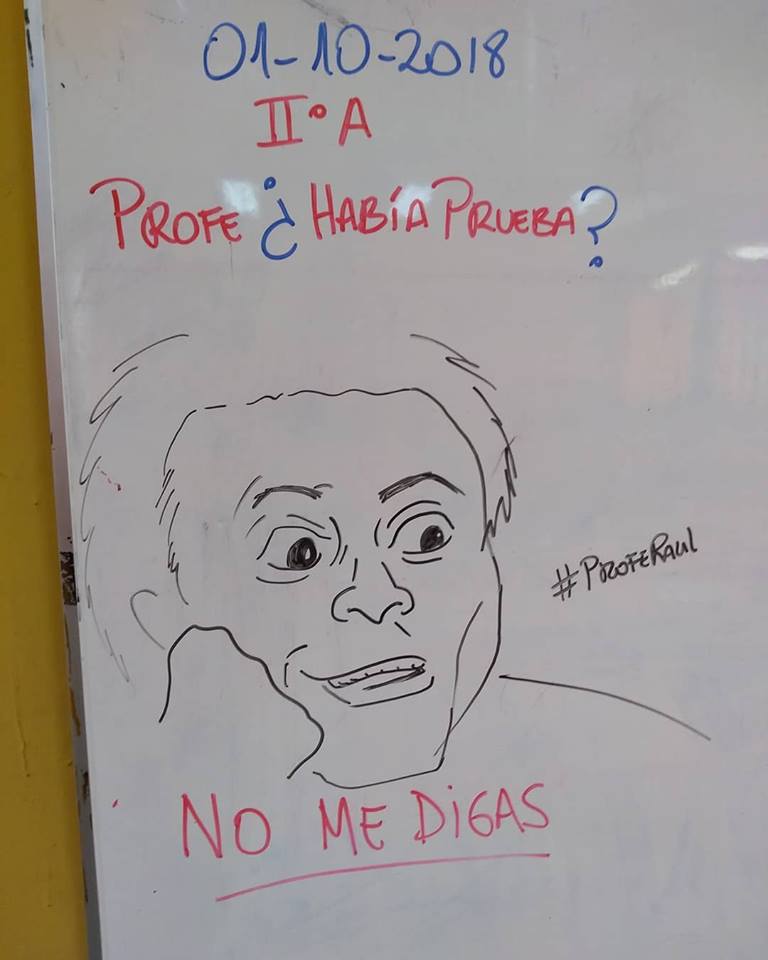 01-10-2018
II°A
PROFE ¿HABÍA PRUEBA?
#PROFERAUL
NO ME DIGAS